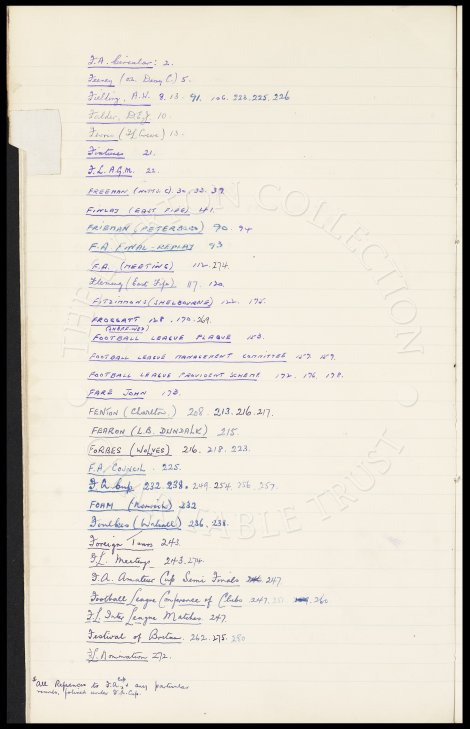 F.A. Circular: 2.
Feeney (on Derry C) 5.
Fielding, A.W. 8. 13. 91. 106. 223. 225. 226
Falder, D.E.J. 10.
13.
Fixtures 21.
F.L. A.G.M. 22.
FREEMAN, (NOTTS. C). 30, 33. 39
FINLAY (EAST FIFE) 41.
FRIEMAN (PETERBORO) 90. 94
F.A FINAL-REPLAY 93
F.A. (MEETING) 112. 274.
Fleming (East Fife) 117. 120.
FITZIMMONS (SHELBOURNE) 122. 175.
FROGGATT 128. 170. 269.
(SHEFF. WED)
FOOTBALL LEAGUE PLAQUE 153.
FOOTBALL LEAGUE MANAGEMENT COMMITTEE 157. 159.
FOOTBALL LEAGUE PROVIDENT SCHEME 172. 176. 178.
FARE JOHN 173.
FENTON (Charlton,) 208. 213. 216. 217.
FEARON (L.B. DUNDALK) 215.
FORBES (WOLVES) 216. 218. 223.
F.A. COUNCIL. 225.
F.A Cup 232. 238. 249. 254. 256. 257.
FOAM (Norwich) 232
Foulkes (Walsall) 236. 238.
Foreign Tours 243.
F.L. Meetings 243. 274.
F.A. Amateur Cup Semi Finals 247
Football League Conference of Clubs. 247. 251. 260
F.L. Inter League Matches. 247.
Festival of Britain. 262. 275. 280
F.L. Nomination 272.
* All References to F.A. Cup & any particular
rounds, filed under F.A. Cup.
THE CHARITABLE TRUST COLLECTION